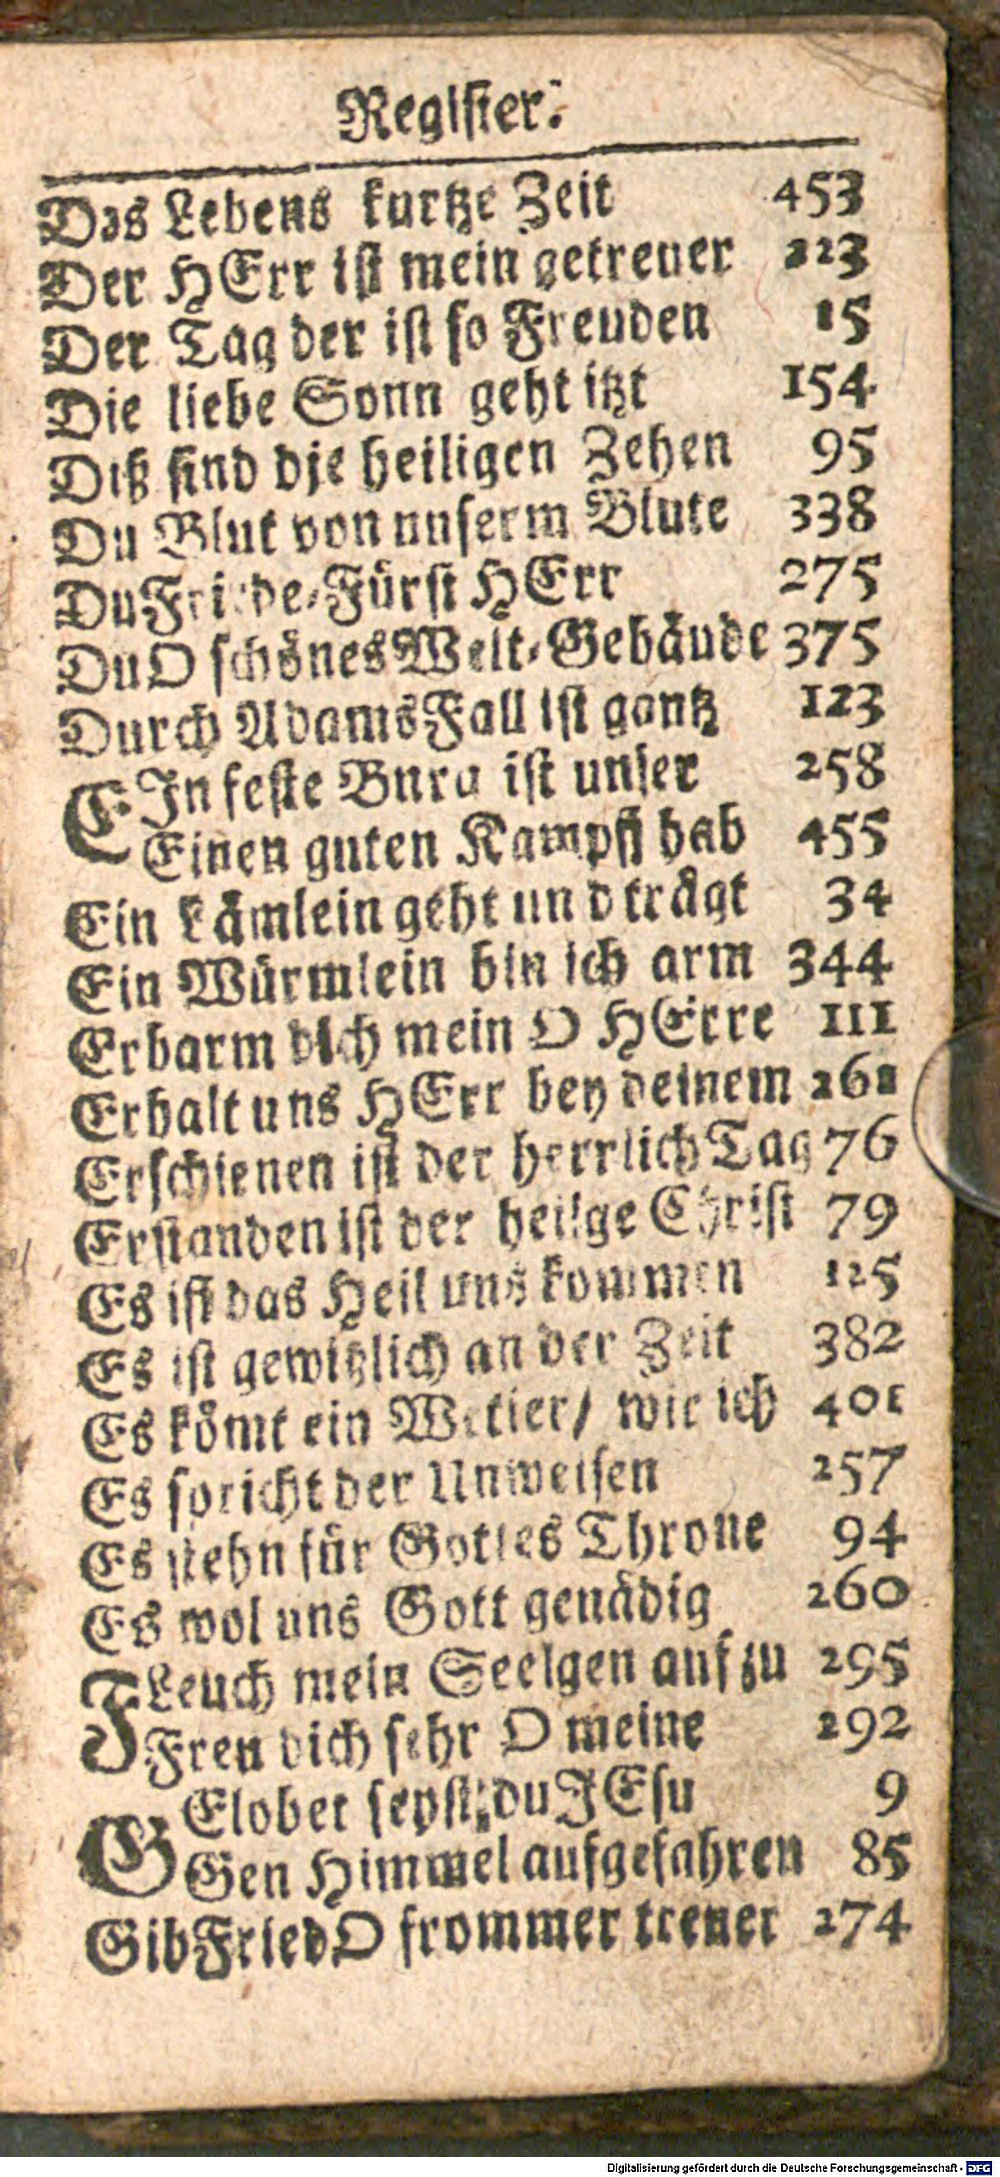 Register.
Das Lebens kurtze Zeit 453
Der HErr ist mein getreuer 223
Der Tag der ist so Freuden 15
Die liebe Sonn geht itzt 154
Diß sind die heiligen Zehen 95
Du Blut von unserm Blute 338
Du Friede-Fürst HErr 275
Du O schönes Welt-Gebäude 375
Durch Adams Fall ist gantz 123
EIn feste Burg ist unser 258
Einen guten Kampff hab 455
Ein Lämlein geht und trägt 34
Ein Würmlein bin ich arm 344
Erbarm dich mein O HErre 111
Erhalt uns HErr bey deinem 261
Erschienen ist der herrlich Tag 76
Erstanden ist der heilge Christ 79
Es ist das Heil uns kommen 125
Es ist gewißlich an der Zeit 382
Es kömt ein Wetter/ wie ich 401
Es spricht der Unweisen 257
Es stehn für Gottes Throne 94
Es wol uns Gott genädig 260
FLeuch mein Seelgen auf zu 295
Freu dich sehr O meine 292
GElobet seyst du JEsu 9
Gen Himmel aufgefahren 85
Gib Fried O frommer treuer 274
Digitalisierung gefördert durch die Deutsche Forschungsgemeinschaft - DFG